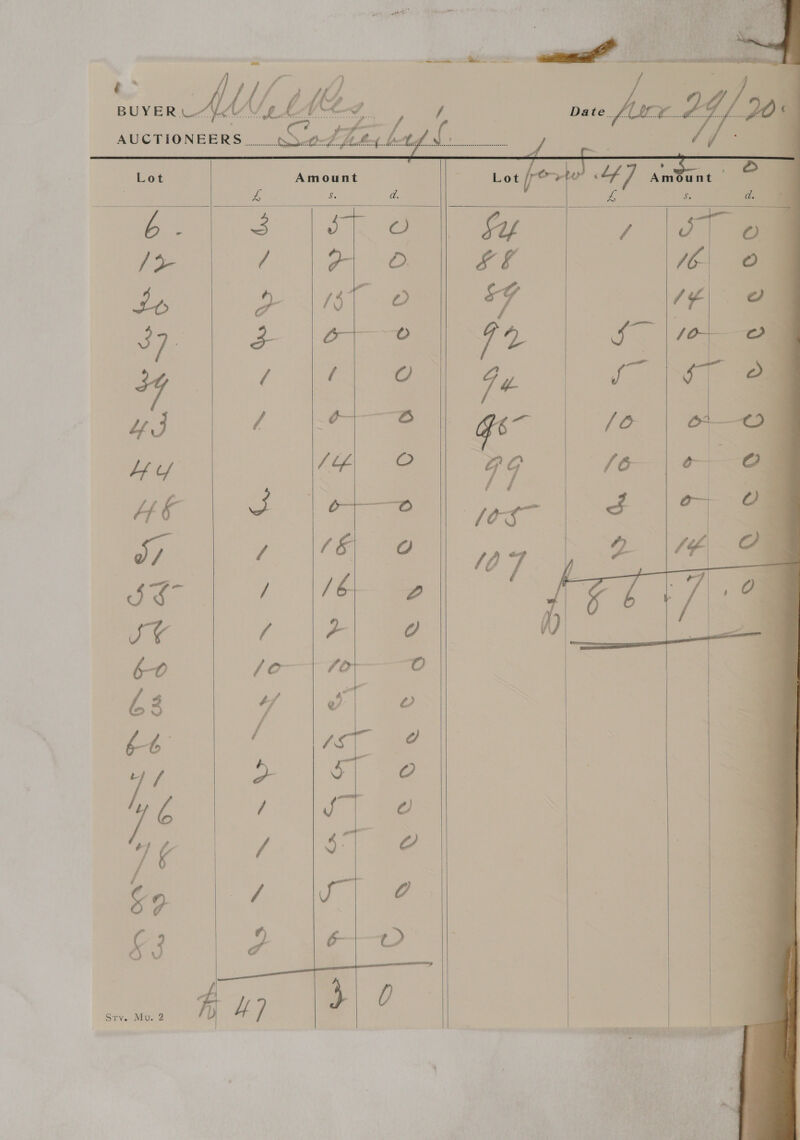 BUYER AWilkes Date Nov 29/20
AUCTIONEERS Sotheby's.
Lot Amount Lot forwd 47 3 0 Amount
£ s. d. £ s. d.
6 - 3 5 0
12 1 2 0
30 2 15 0
37 3 0 0
39 1 1 0
43 1 0 0
44 14 0
48 3 0 0
51 1 18 0
55 1 16 0
58 1 2 0
60 10 10 0
63 7 5 0
66 15 0
71 2 5 0
76 1 5 0
78 1 5 0
82 1 5 0
83 2 0 0
£ 47 3 0
84 1 5 0
88 16 0
89 14 0
92 5 10 0
94 5 5 0
95 10 0 0
99 10 0 0
105 3 0 0
107 2 14 0
£ 86 . 7 . 0
Sty. Mu. 2